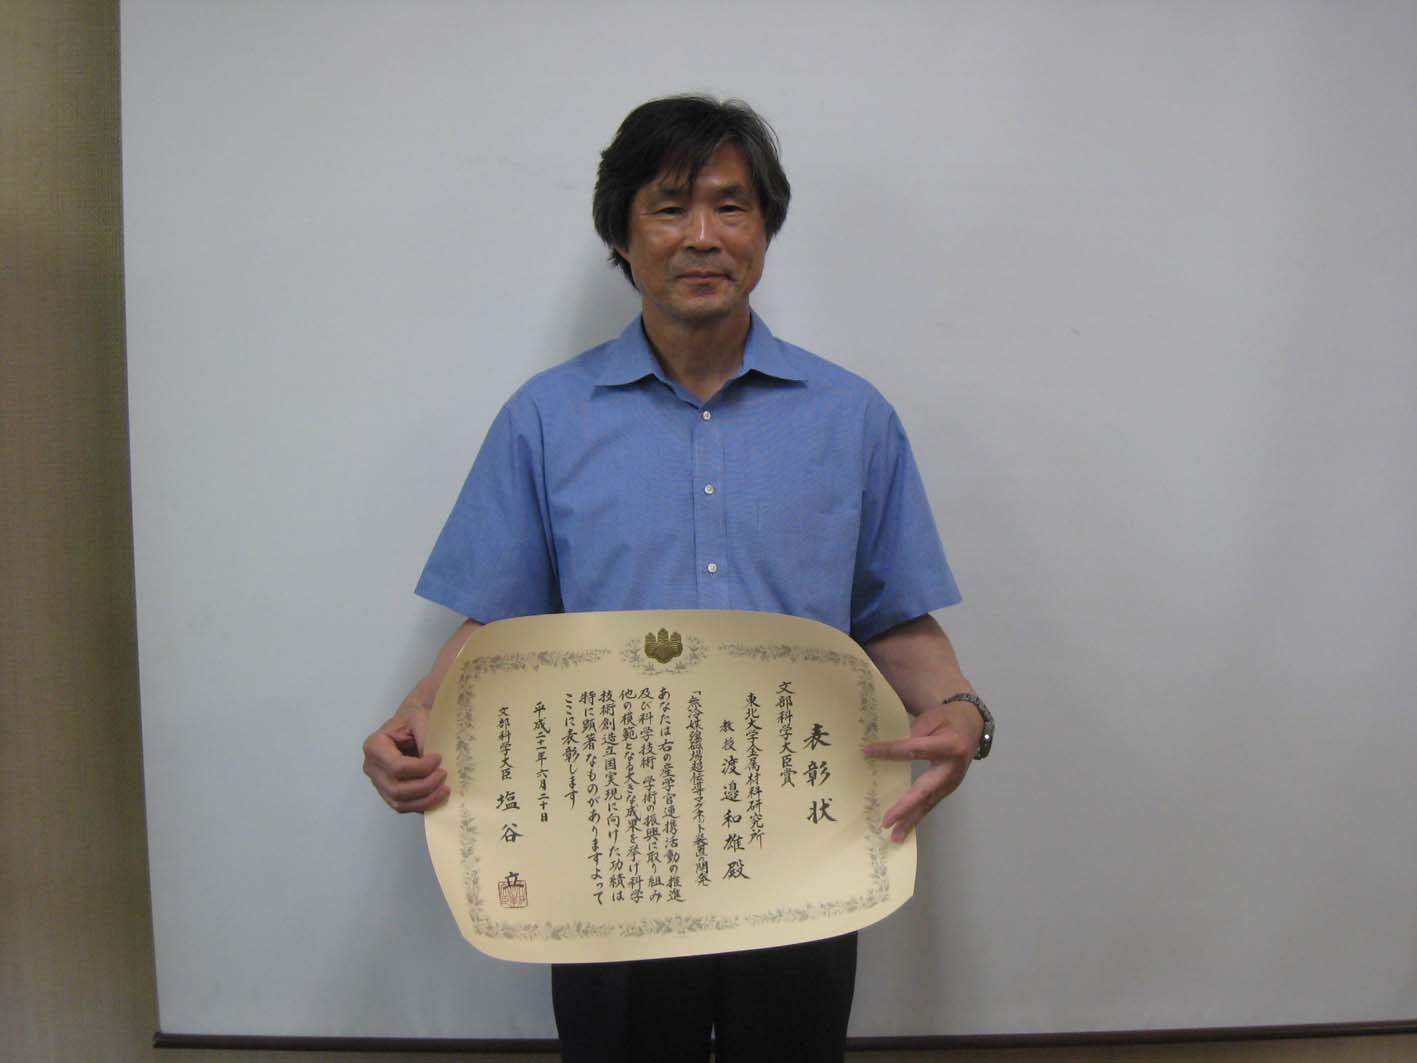 表彰状
文部科学大臣賞
東北大学金属材料研究所
教授 渡邉和雄殿
「無冷媒強磁場超伝導マグネット装置の開発
あなたは右の産学官連携活動の推進
及び科学技術・学術の振興に取り組み
他の模範となる大きな成果を挙げ科学
技術創造立国実現に向けた功績は
特に顕著なものがありますよって
ここに表彰します
平成二十一年六月二十日
文部科学大臣 塩谷 立